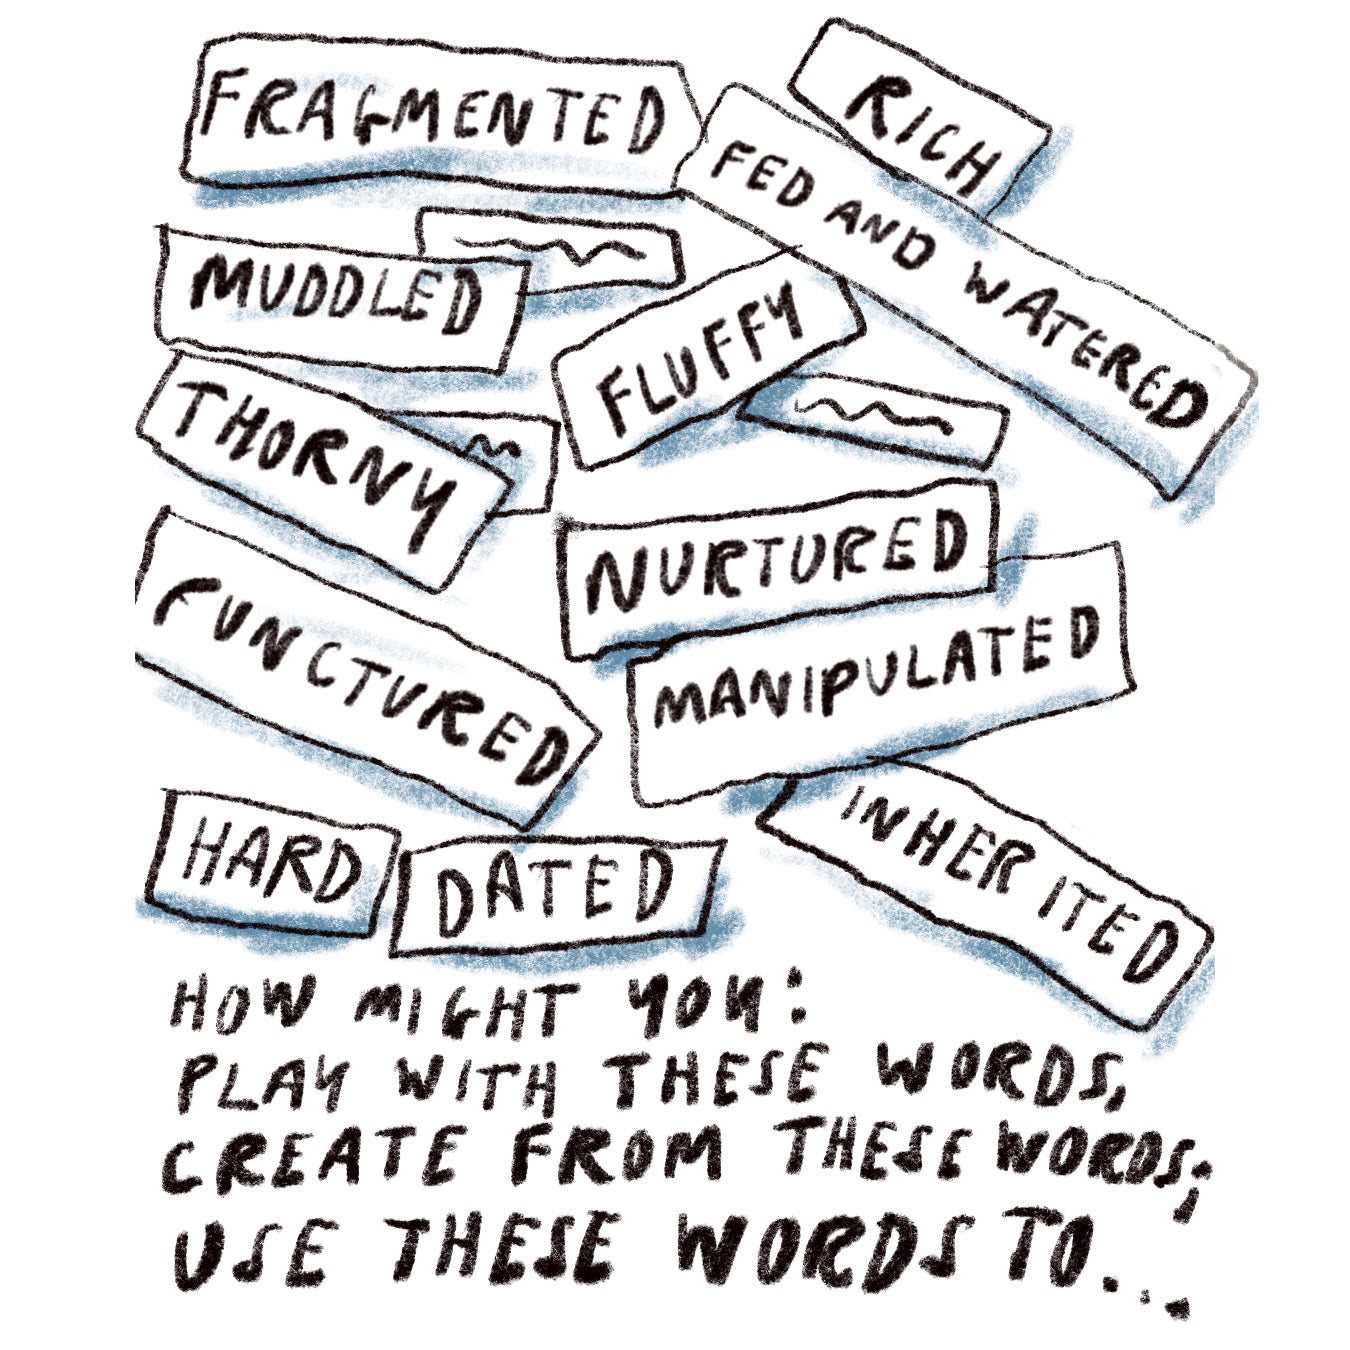 FRAGMENTED
RICH
FED AND WATERED
MUDDLED
FLUFFY
THORNY
NURTURED
FUNCTURED
MANIPULATED
INHERITED
HARD
DATED
HOW MIGHT YOU:
PLAY WITH THESE WORDS,
CREATE FROM THESE WORDS;
USE THESE WORDS TO...